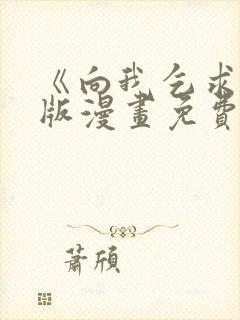 《向我乞求
版漫畫免費
蕭頎